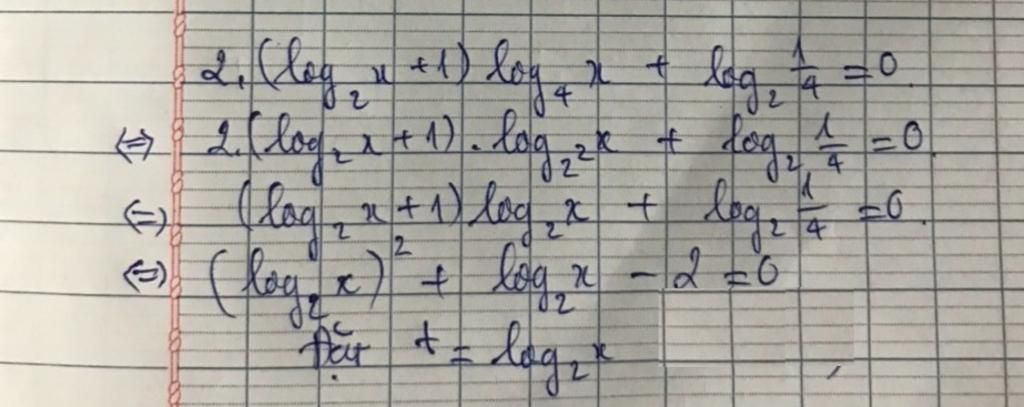 2.(log₂x + 1) log₄x + log₂ 1/4 = 0
⇔ 2.(log₂x + 1) . log₂²x + log₂ 1/4 = 0
⇔ (log₂x + 1) log₂x + log₂ 1/4 = 0.
⇔ (log₂x)² + log₂x - 2 = 0
Đặt t = log₂x